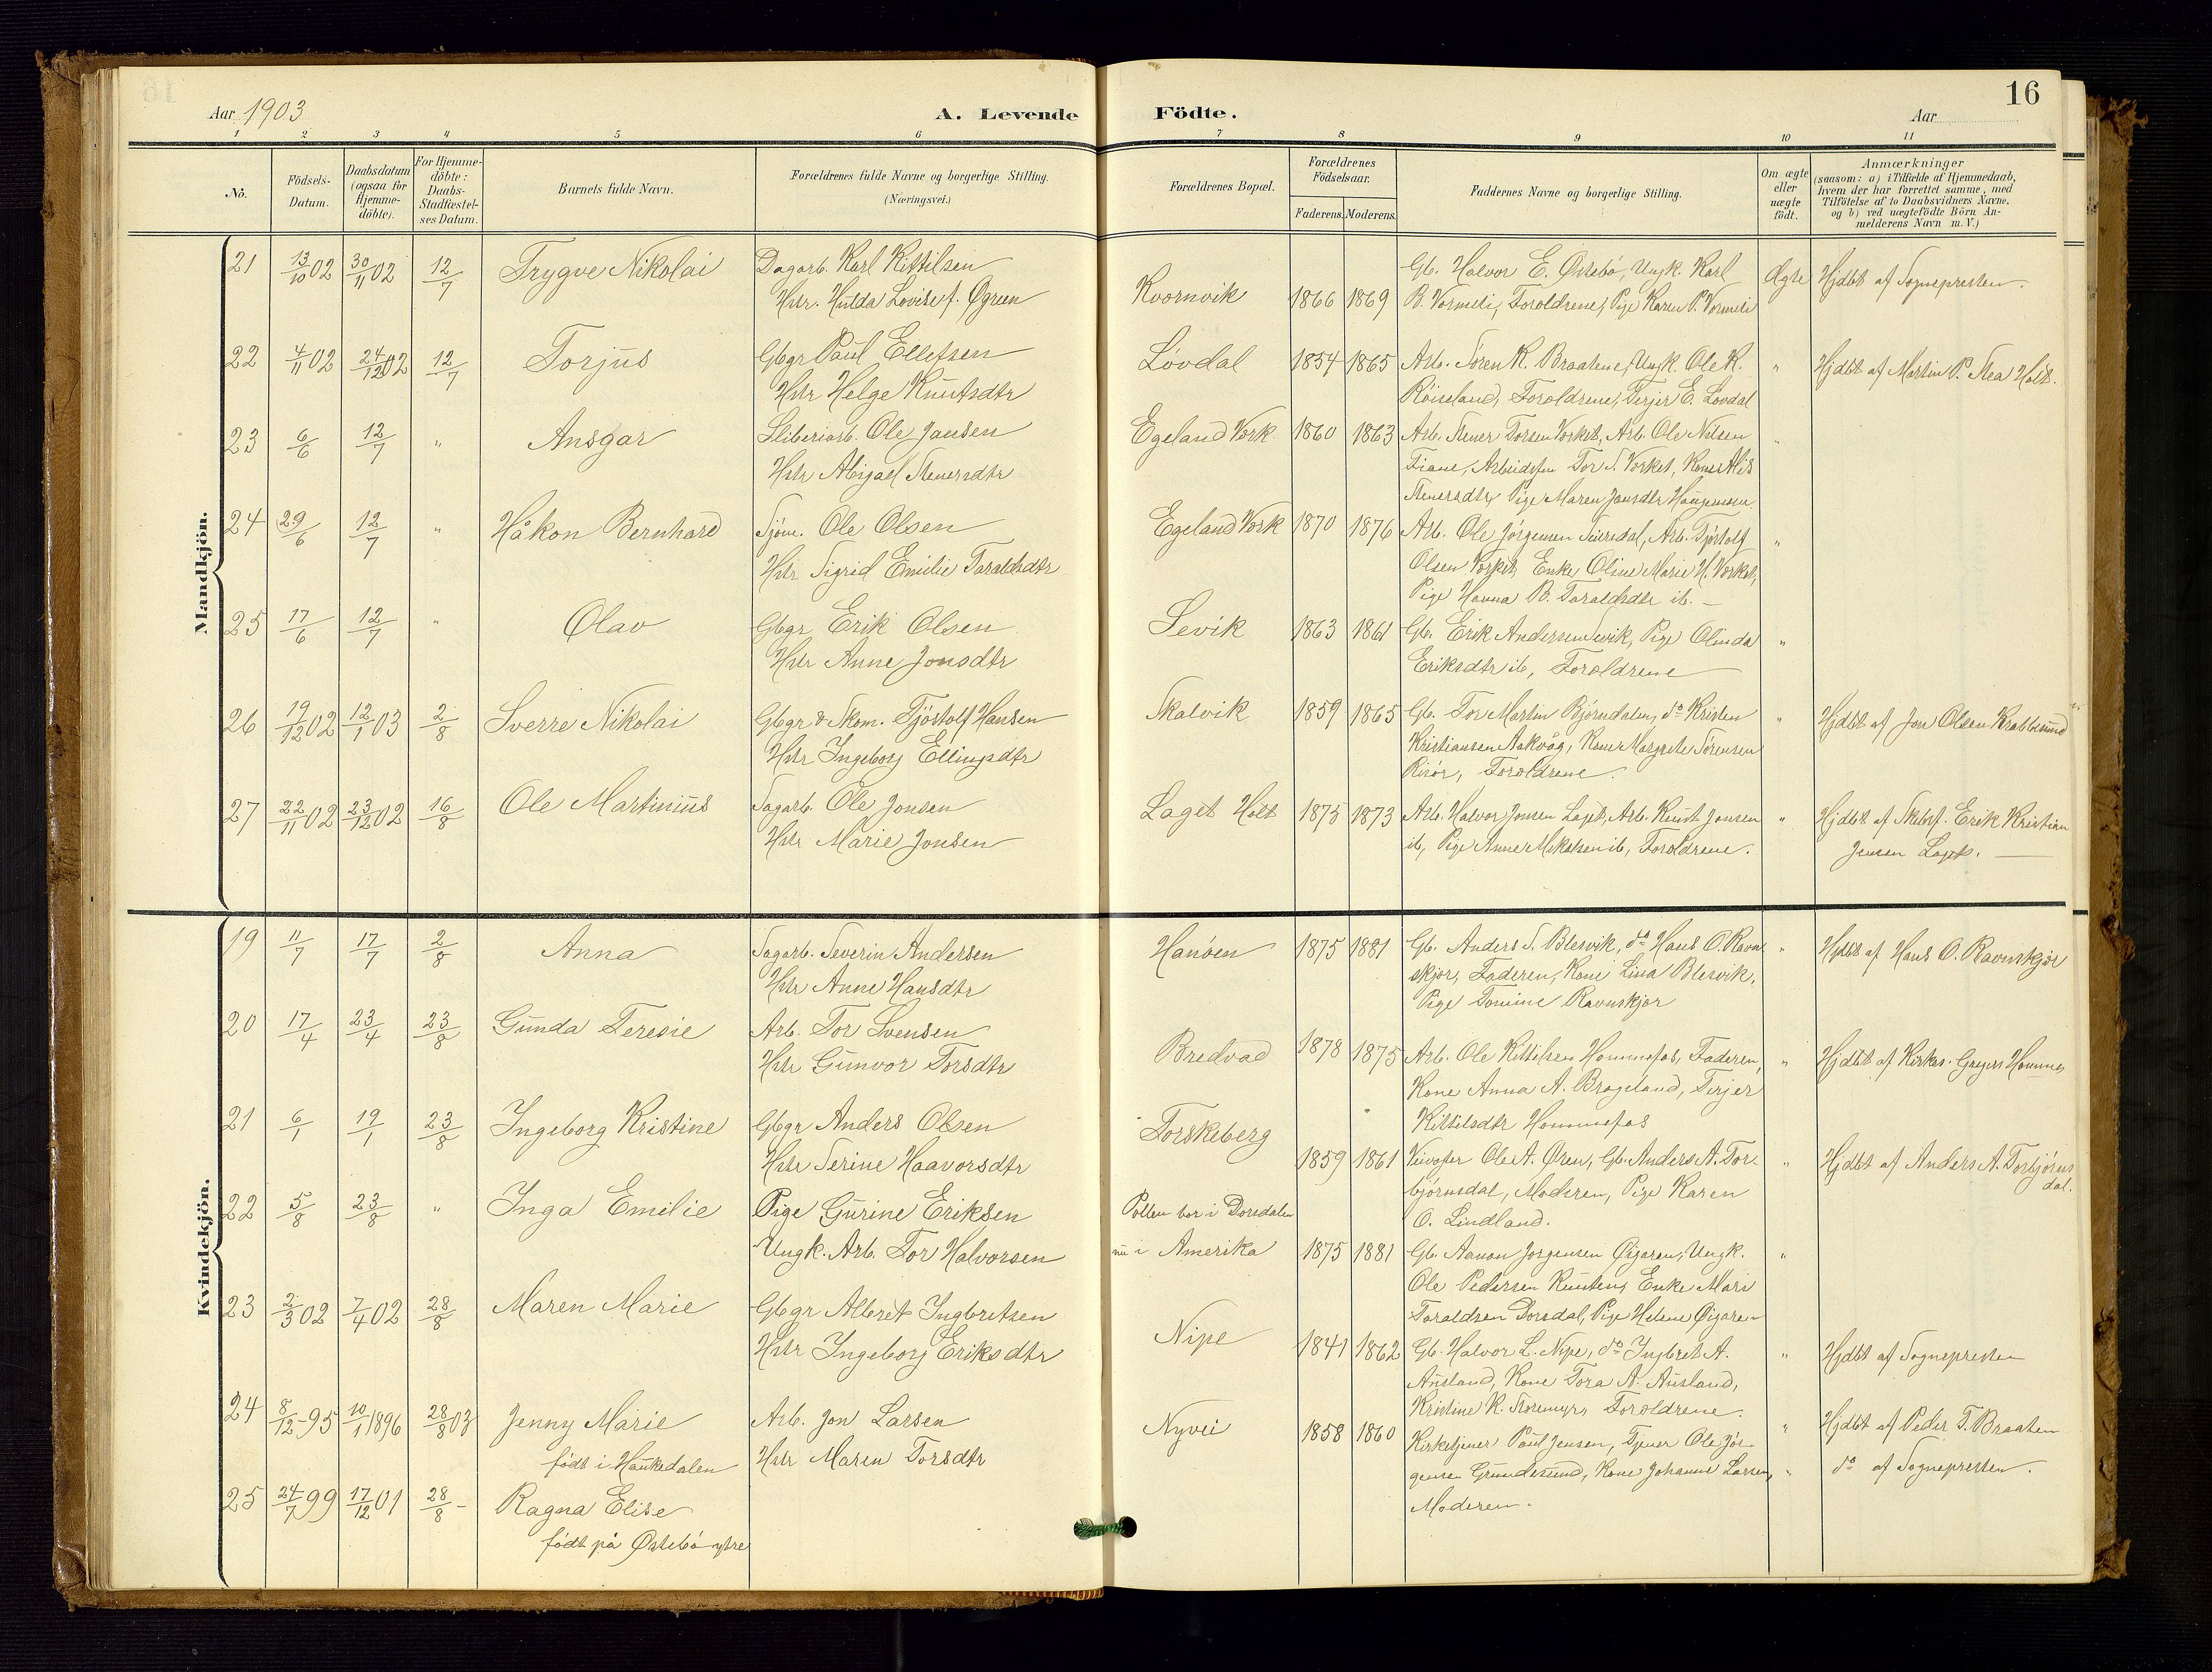 16
Aar 1903
A. Levende Födte.
Aar
1 2 3 4 5 6 7 8 9 10 11
No.
Födsels-Datum.
Daabsdatum (ogsaa for Hjemme-döbte).
For Hjemme-döbte: Daabs-Stadfæstel-ses Datum.
Barnets fulde Navn.
Forældrenes fulde Navne og borgerlige Stilling. (Næringsvei.)
Forældrenes Bopæl.
Forældrenes Födselsaar.
Faderens. Moderens.
Faddernes Navne og borgerlige Stilling.
Om ægte eller uægte födt.
Anmærkninger
(saasom: a) i Tilfælde af Hjemmedaab,
hvem der har forrettet samme, med
Tilföielse af to Daabsvidners Navne.
og b) ved uægtefödte Börn An-
melderens Navn m. V.)
Mandkjön.
21 13/10 02 30/11 02 12/7 Trygve Nikolai Dagarb. Karl Kittilsen Kvornvik 1866 1869 Gb. Halvor E. Östebö, Ungk. Karl Ægte Hjdbt af Sognepresten.
Hstr. Hulda Lovise f. Øgreen B. Vormeli, Foroldrene, Pige Karen P. Vormeli
22 4/11 02 24/12 02 12/7 Torjus Gbgr Paul Ellefsen Lövdal 1854 1865 Arb. Sören K. Braatene, Ungk. Ole K. " Hjdbt af Martin P. Stea Holt.
Hstr Helge Knutsdtr Röiseland, Foroldrene, Terjer E. Lövdal
23 6/6 12/7 " Ansgar Sliberiarb. Ole Jansen Egeland Verk 1860 1863 Arb. Stener Torsen Verket, Arb. Ole Nilsen "
Hstr Abigael Stenersdtr Fiane, Tor S. Verket,
Stenersdtr, Pige Maren Jansdtr
24 29/6 12/7 " Håkon Bernhard Sjöm. Ole Olsen Egeland Verk 1870 1876 Arb. Ole Jörgensen Arb. Tjöstolf "
Hstr Sigrid Emilie Taraldsdtr Olsen Verket, Enke Oline Marie H. Verket,
Pige Hanna B. Taraldsdtr ib.
25 17/6 12/7 " Olav Gbgr Erik Olsen Sevik 1863 1861 Gb. Erik Andersen Sevik, Pige Olinda "
Hstr Anne Jonsdtr Eriksdtr ib, Foroldrene
26 19/12 02 12/1 03 2/8 Sverre Nikolai Gbgr & Skom. Tjöstolf Hansen Skalvik 1859 1865 Gb. Tor Martin Björndalen, do Kristen " Hjdbt af Jon Olsen Krabbesund
Hstr Ingeborg Ellingsdtr Kristiansen Aakvåg, Kone Margrete Sörensen
Risör, Foroldrene.
27 22/11 02 23/12 02 16/8 Ole Martinius Sagarb. Ole Jonsen Laget Holt 1875 1873 Arb. Halvor Jonsen Laget, Arb. Knut Jonsen " Hjdbt af Skibsf. Erik Kristian
Hstr Marie Jonsen ib, Pige Anne Mikalsen ib, Foroldrene. Jensen Laget.
Kvindekjön.
19 11/7 17/7 2/8 Anna Sagarb. Severin Andersen Hanöen 1875 1881 Gb. Anders S. Blesvik, do Hans O. Ravn " Hjdbt af Hans O. Ravnskjör
Hstr Anne Hansdtr skjör, Faderen, Kone Lina Blesvik,
Pige Tomine Ravnskjor
20 17/4 23/4 23/8 Gunda Teresie Arb. Tor Svensen Bredvad 1878 1875 Arb. Ole Kittilsen Hommefos, Faderen, " Hjdbt af Kirkes. Gregers Hommes
Hstr Gunvor Torsdtr Kone Anna A. Brageland, Terjer
Kittilsdtr Hommefos
21 6/1 19/1 23/8 Ingeborg Kristine Gbgr Anders Olsen Torskeberg 1859 1861 Veivogter Ole A. Ören, Gb. Anders A. Tor- " Hjdbt af Anders A. Torbjörns
Hstr Serine Haavorsdtr björnsdal, Moderen, Pige Karen dal.
O. Lindland.
22 5/8 23/8 " Inga Emilie Pige Gurine Eriksen Pollen bor i Dorsdalen
Ungk. Arb. Tor Halvorsen nu i Amerika 1875 1881 Gb. Aanon Jorgensen Öigaren, Ungk. "
Ole Pedersen Enke Mari
Taraldsen Dorsdal, Pige Helene Öigaren
23 2/3 02 7/4 02 28/8 Maren Marie Gbgr Albret Ingbretsen Nipe 1841 1862 Gb. Halvor L. Nipe, do Ingbret A. " Hjdbt af Sognepresten
Hstr Ingeborg Eriksdtr Ausland, Kone Tora A. Ausland,
Kristine K. Storemyr, Foroldrene.
24 8/12-95 10/1 1896 28/8 03 Jenny Marie Arb. Jon Larsen Nyvei 1858 1860 Kirketjener Paul Jensen, Tjener Ole Jör- " Hjdbt af Peder T. Braaten
födt i Haukedalen Hstr Maren Torsdtr gensen Grundesund, Kone Johanne Larsen, " do af Sognepresten.
25 24/7 99 17/12 01 28/8 - Ragna Elise Moderen.
födt på Östebö ytre